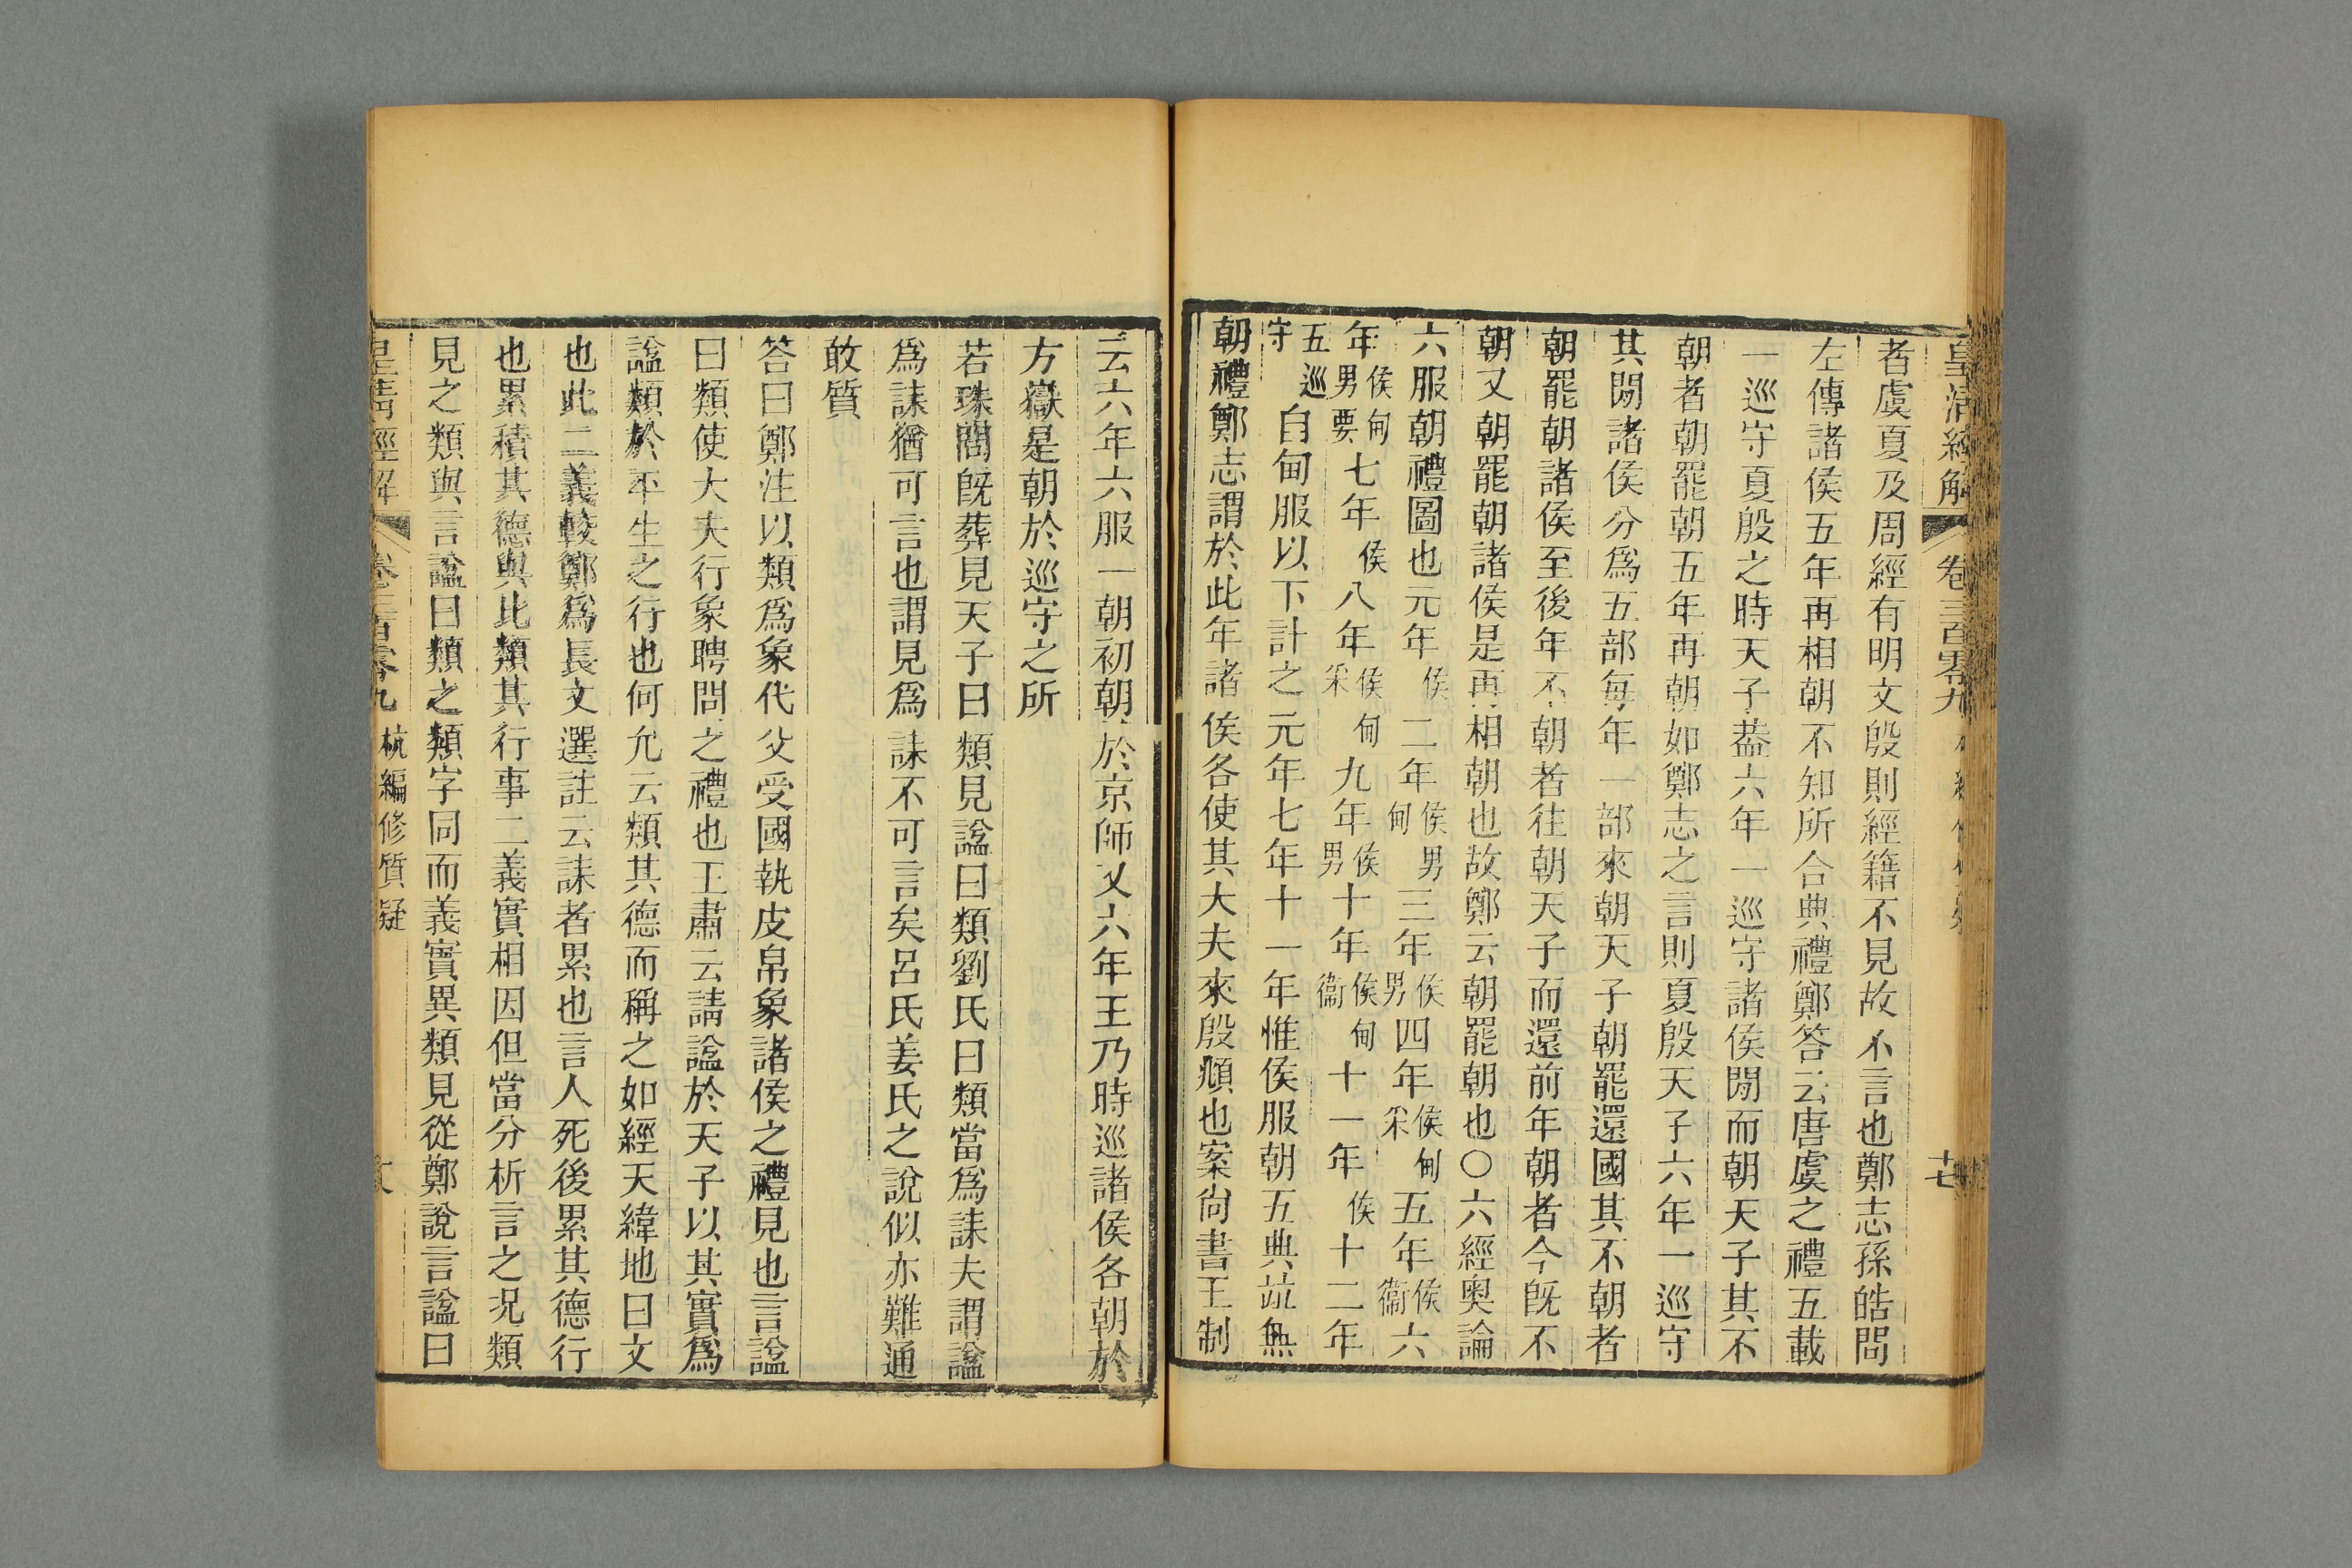 皇清經解 卷三百零九 十七
者虞夏及周經有明文殷則經籍不見故不言也鄭志孫皓問
左傳諸侯五年再相朝不知所合典禮鄭答云唐虞之禮五載
一巡守夏殷之時天子葢六年一巡守諸侯閒而朝天子其不
朝者朝罷朝五年再朝如鄭志之言則夏殷天子六年一巡守
其閒諸侯分爲五部每年一部來朝天子朝罷還國其不朝者
朝罷朝諸侯至後年不朝者往朝天子而還前年朝者今旣不
朝又朝罷朝諸侯是再相朝也故鄭云朝罷朝也○六經奥論
六服朝禮圖也元年侯二年侯男甸三年侯男四年侯甸采五年侯衞六
年侯甸男要七年侯八年侯甸采九年侯男十年侯甸衞十一年侯十二年
五巡守自甸服以下計之元年七年十一年惟侯服朝五典竝無
朝禮鄭志謂於此年諸侯各使其大夫來殷頫也案尙書王制
云六年六服一朝初朝於京師又六年王乃時巡諸侯各朝於
方嶽是朝於巡守之所
若珠問旣葬見天子曰類見諡曰類劉氏曰類當爲誄夫謂諡
爲誄猶可言也謂見爲誄不可言矣呂氏姜氏之說似亦難通
敢質
答曰鄭注以類爲象代父受國執皮帛象諸侯之禮見也言諡
曰類使大夫行象聘問之禮也王肅云請諡於天子以其實爲
諡類於平生之行也何允云類其德而稱之如經天緯地曰文
也此二義較鄭爲長文選註云誄者累也言人死後累其德行
也累積其德與比類其行事二義實相因但當分析言之况類
見之類與言諡曰類之類字同而義實異類見從鄭說言諡曰
皇清經解 卷三百零九 杭編修質疑